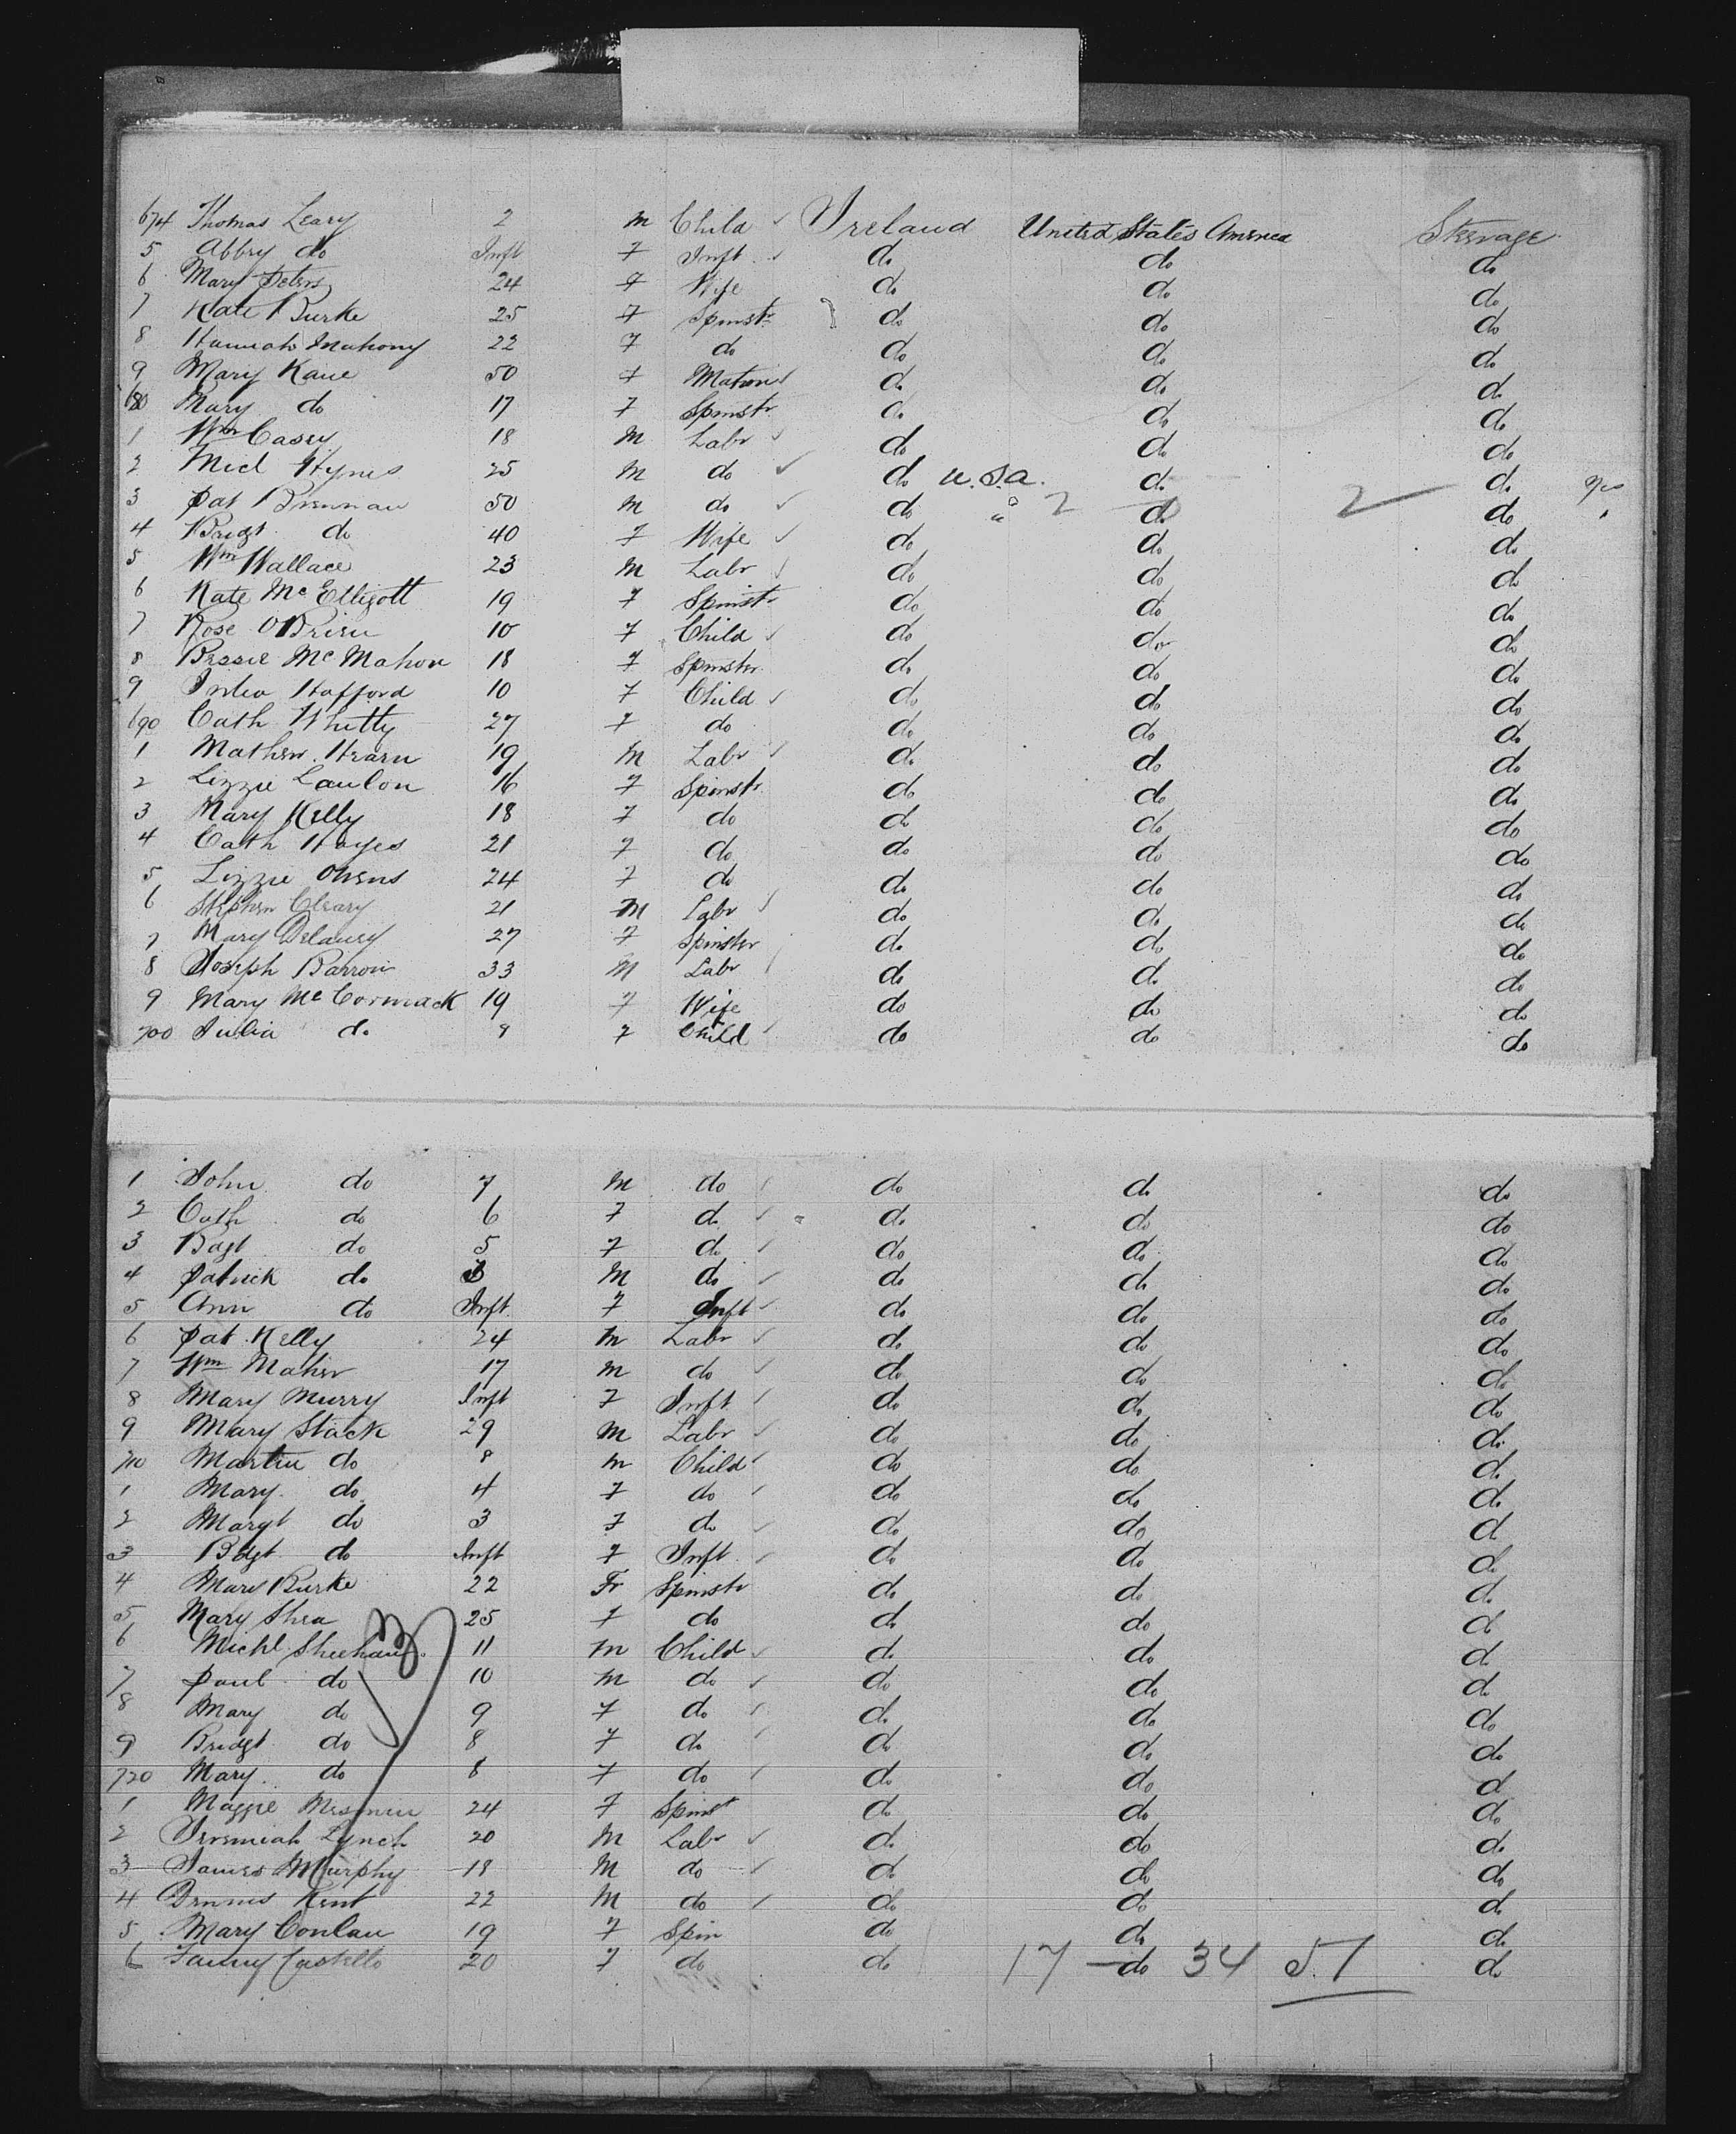 674 Thomas Leary 2 m Child ✓ Ireland United States America Steerage
5 Abbey do Inft F Inft ✓ do do do
6 Mary Peters 24 F Wife do do do
7 Kate Burke 25 F Spinstr do do do
8 Hannah Mahony 22 F do do do do
9 Mary Kane 50 F Matron ✓ do do do
680 Mary do 17 F Spinstr do do do
1 Wm Casey 18 M Labr ✓ do do do
2 Micl Hynes 25 M do ✓ do U.S.A. do do yes
3 Pat Brennan 50 M do ✓ do " 2 do 2 do
4 Bridgt do 40 F Wife ✓ do do do
5 Wm Wallace 23 M Labr ✓ do do do
6 Kate McElligott 19 F Spinstr do do do
7 Rose OBrien 10 F Child ✓ do do do
8 Bessie McMahon 18 F Spinstr do do do
9 Hafford 10 F Child ✓ do do do
690 Cath Whitty 27 F do do do do
1 Mathew Hearn 19 M Labr ✓ do do do
2 Lizzie 16 F Spinstr do do do
3 Mary Kelly 18 F do do do do
4 Cath Hayes 21 F do do do do
5 Lizzie Owens 24 F do do do do
6 Stephen Cleary 21 M Labr ✓ do do do
7 Mary Delaney 27 F Spinster do do do
8 Joseph Barron 33 M Labr do do do
9 Mary McCormack 19 F Wife do do do
700 Julia do 9 F Child ✓ do do do
1 John do 7 M do ✓ do do do
2 Cath do 6 F do ✓ do do do
3 Bdgt do 5 F do ✓ do do do
4 Patrick do 3 M do ✓ do do do
5 Ann do Inft F Inft ✓ do do do
6 Pat Kelly 24 M Labr ✓ do do do
7 Wm Maher 17 M do ✓ do do do
8 Mary Murry Inft F Inft ✓ do do do
9 Mary Stack 29 M Labr ✓ do do do
710 Martin do 8 M Child ✓ do do do
1 Mary do 4 F do ✓ do do do
2 Margt do 3 F do ✓ do do do
3 Bdgt do Inft F Inft ✓ do do do
4 Mary Burke 22 Fr Spinstr do do do
5 Mary Shea 25 F do do do do
6 Michl Sheehan 11 M Child ✓ do do do
7 Paul do 10 M do ✓ do do do
8 Mary do 9 F do ✓ do do do
9 Bridgt do 8 F do ✓ do do do
720 Mary do 8 F do ✓ do do do
1 Maggie 24 F Spinst do do do
2 Jeremiah Lynch 20 M Labr ✓ do do do
3 James Murphy 18 M do ✓ do do do
4 Dennis Kent 22 M do ✓ do do do
5 Mary Conlan 19 F Spin do do do
6 Fanny Costello 20 F do do 17 do 34 51 do